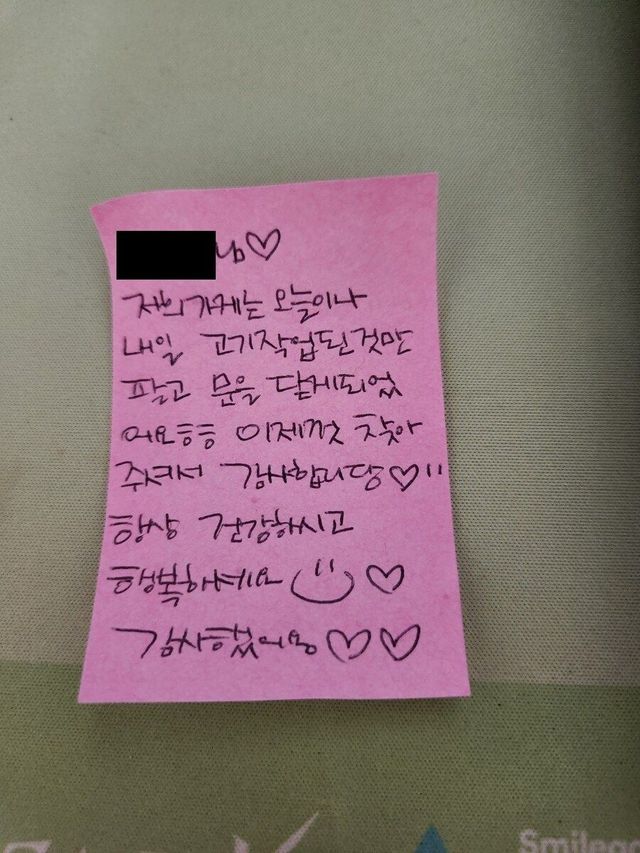 님♡
저희가게는 오늘이나
내일 고기작업된것만
팔고 문을 닫게되었
어요ㅎㅎ 이제껏 찾아
주셔서 감사합니당♡
항상 건강하시고
행복하세요 ♡
감사했어용♡♡
Smilega